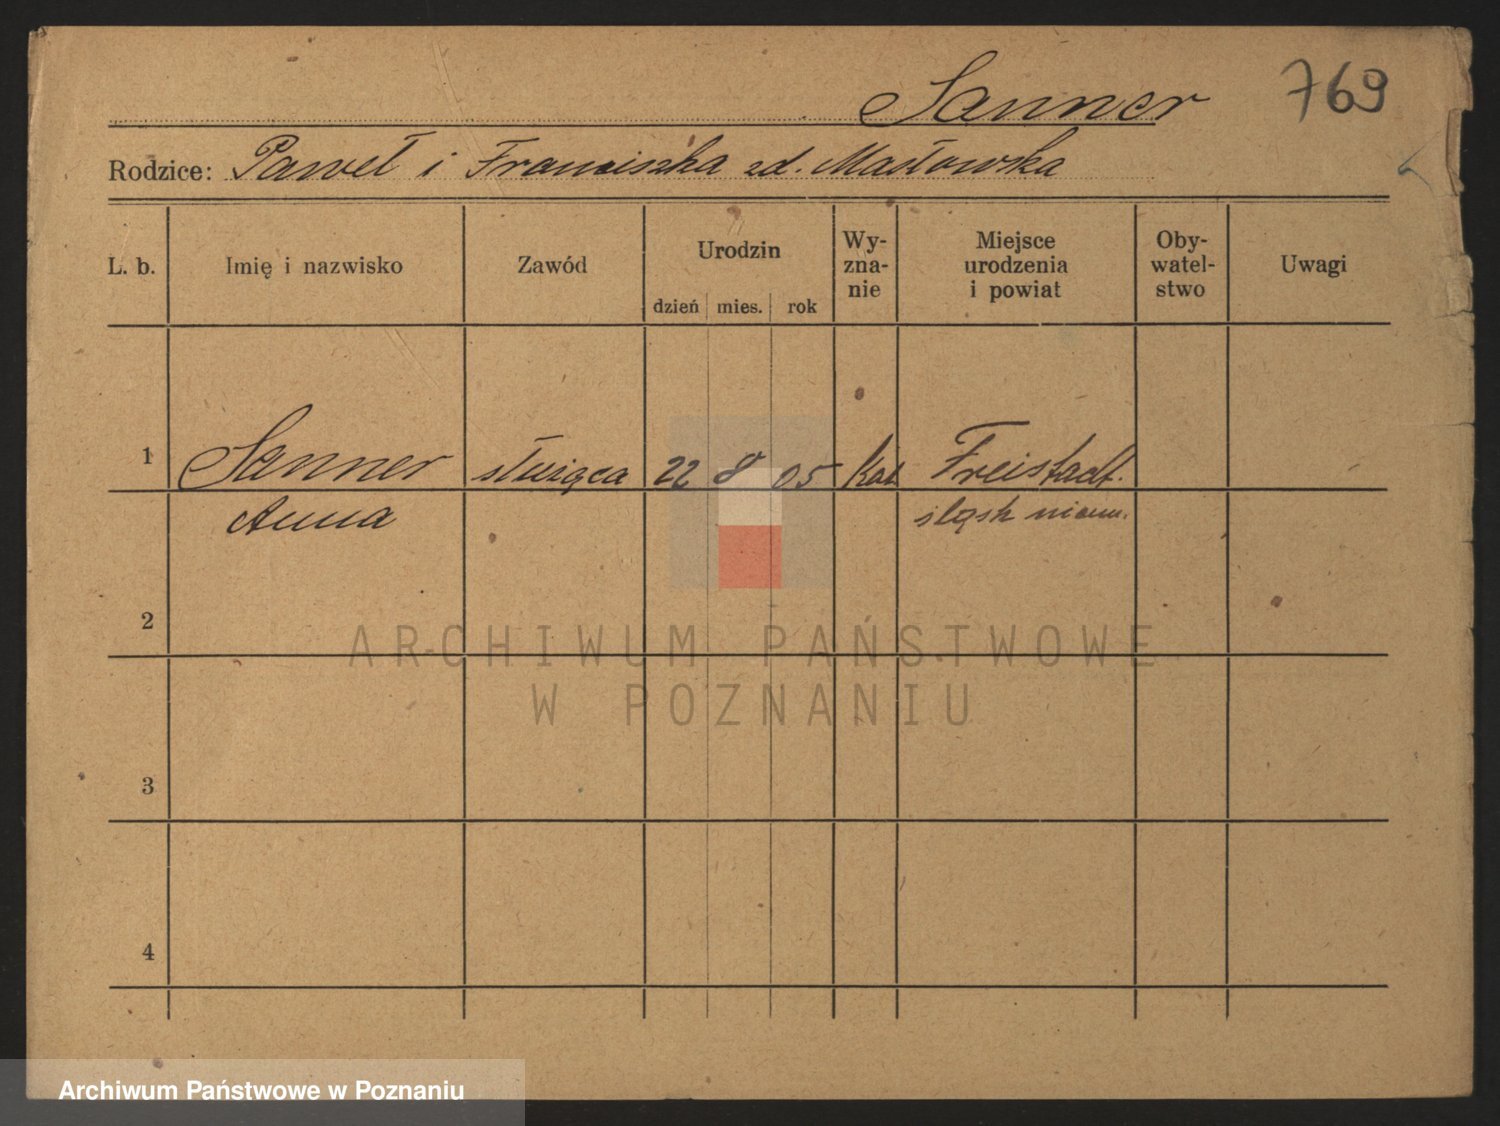 Sanner 769
Rodzice: Paweł i Franciszka zd. Masłowska
L. b. Imię i nazwisko Zawód Urodzin Wy-zna-nie Miejsce urodzenia i powiat Oby-watel-stwo Uwagi
dzień mies. rok
1 Sanner służąca 22 8 05 Kat Freistadt.
Anna śląsk niem.
2
ARCHIWUM PAŃSTWOWE
W POZNANIU
3
4
Archiwum Państwowe w Poznaniu